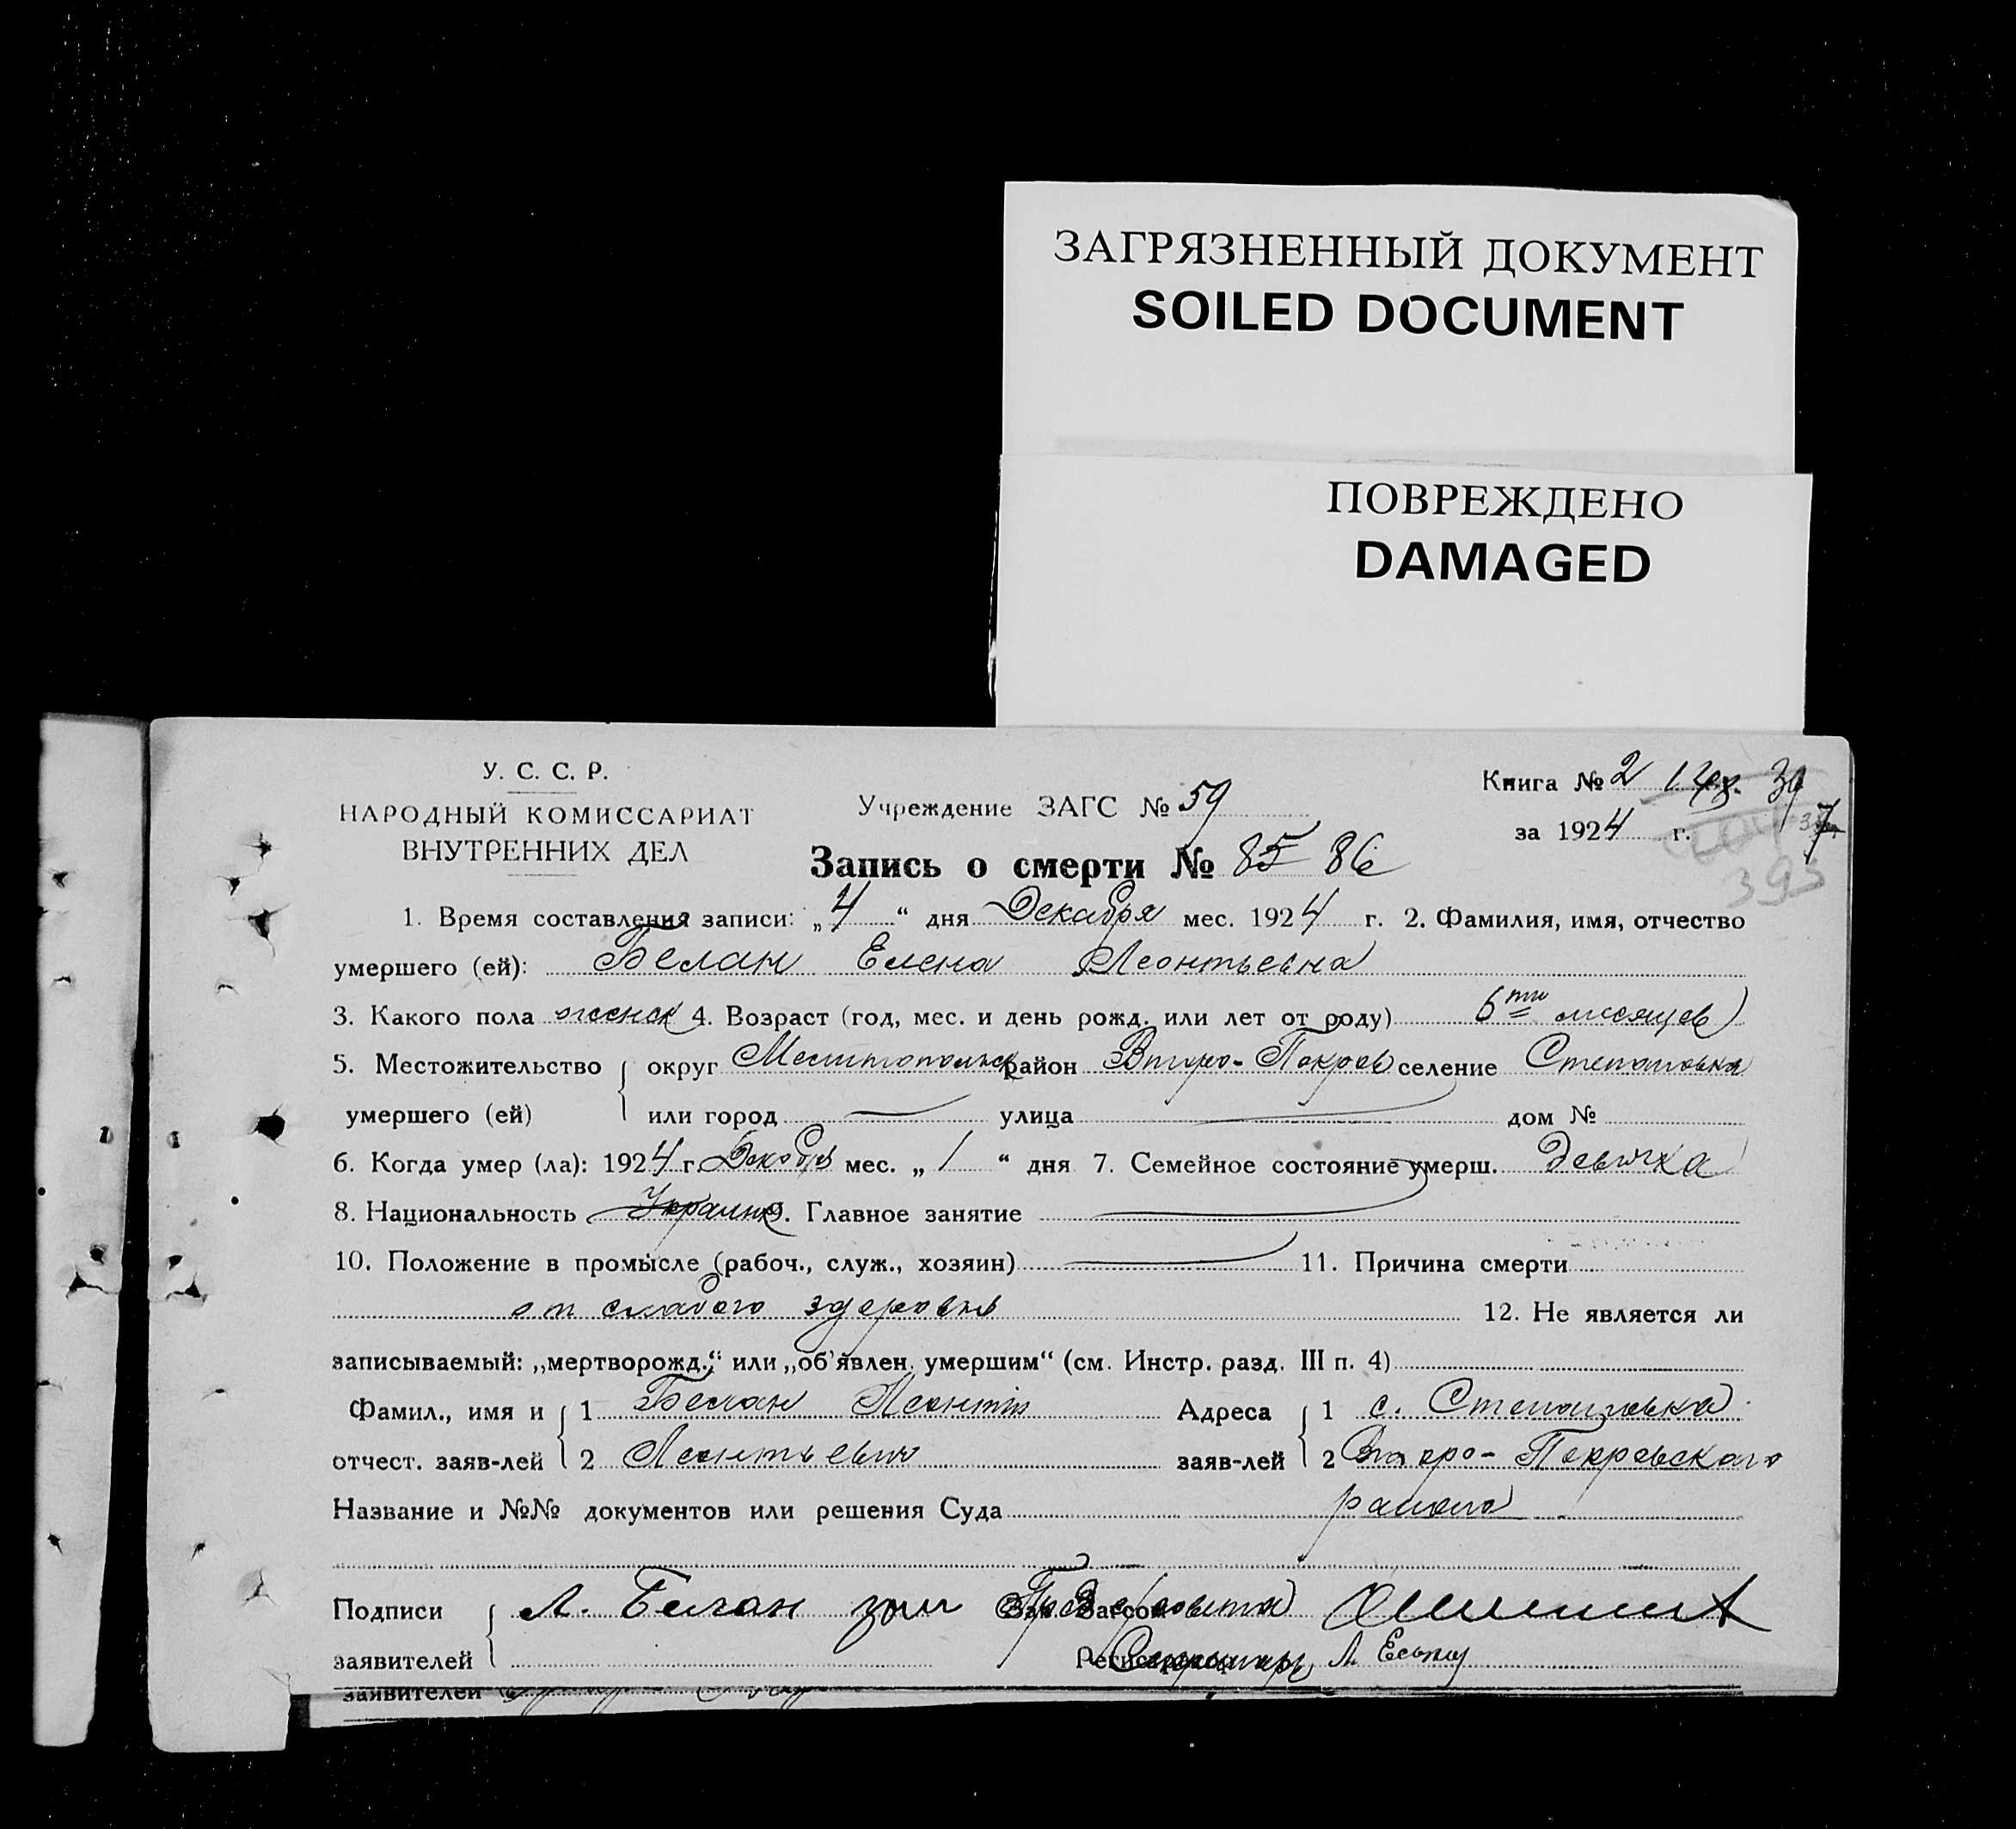 ЗАГРЯЗНЕННЫЙ ДОКУМЕНТ
SOILED DOCUMENT
ПОВРЕЖДЕНО
DAMAGED
У. С. С. Р.
НАРОДНЫЙ КОМИССАРИАТ
ВНУТРЕННИХ ДЕЛ
Учреждение ЗАГС № 59
Книга № 2
за 1924 г.
395
Запись о смерти № 85 86
1. Время составления записи: „4“ дня Декабря мес. 1924 г. 2. Фамилия, имя, отчество
умершего (ей): Белан Елена Леонтьевна
3. Какого пола женск 4. Возраст (год, мес. и день рожд. или лет от роду) 6ти месяцев
5. Местожительство округ Мелитопольск район Второ-Покров селение Степановка
умершего (ей) или город улица дом №
6. Когда умер (ла): 1924 г. Декабря мес. „1“ дня 7. Семейное состояние умерш. Девичка
8. Национальность Украин 9. Главное занятие
10. Положение в промысле (рабоч., служ., хозяин) 11. Причина смерти
от слабого здоровья 12. Не является ли
записываемый: „мертворожд.“ или „об'явлен. умершим“ (см. Инстр. разд. III п. 4)
Фамил., имя и 1 Белан Леонтий Адреса 1 с. Степановка
отчест. заяв-лей 2 Леонтьевич заяв-лей 2 Второ-Покровского
Название и №№ документов или решения Суда района
Подписи Л. Белан Зав. Загсом
заявителей Секретарь
заявителей